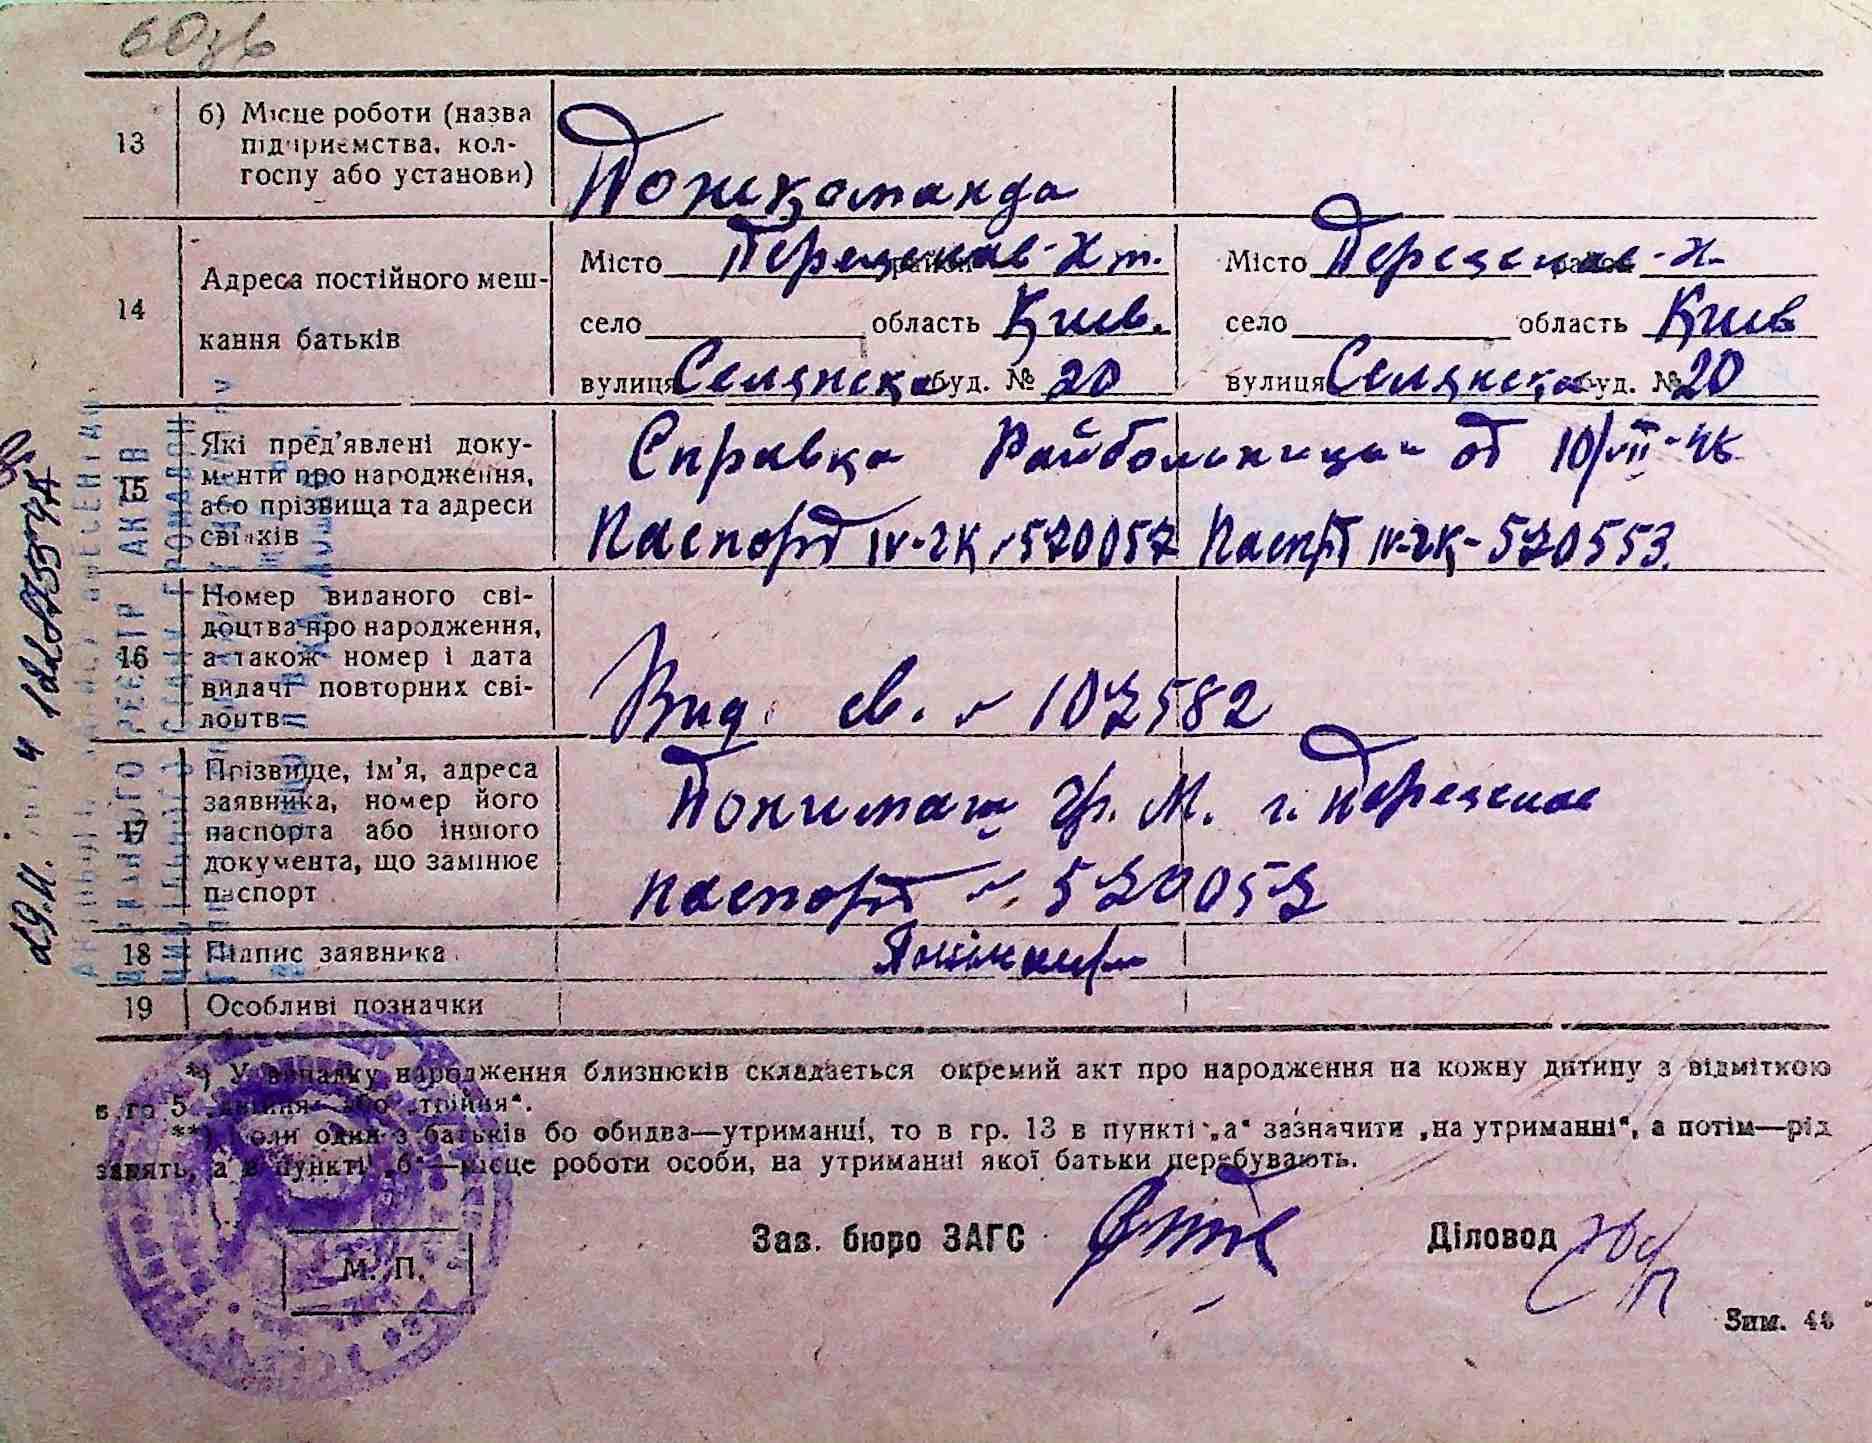 13 б) Місце роботи (назва
підприємства, кол-
госпу або установи)
Пожкоманда
14 Адреса постійного меш-
кання батьків
Місто Переяслав-Хм. район
село область Київ.
вулиця Селянська буд. № 20
Місто Переяслав-Х. район
село область Київ
вулиця Селянська буд. № 20
15 Які пред'явлені доку-
менти про народження,
або прізвища та адреси
свідків
Справка Райбольницы от 10/VII-46
Паспорт IV-ЧК 520057 Паспорт IV-ЧК-520553.
16 Номер виданого сві-
доцтва про народження,
а також номер і дата
видачі повторних сві-
доцтв
Вид. св. 107582
17 Прізвище, ім'я, адреса
заявника, номер його
паспорта або іншого
документа, що замінює
паспорт
Гр. М. г. Переяслав
паспорт 520057
18 Підпис заявника
19 Особливі позначки
*) У випадку народження близнюків складається окремий акт про народження на кожну дитину з відміткою
в гр 5 „двійня“ або „трійня“.
**) Коли один з батьків бо обидва—утриманці, то в гр. 13 в пункті „а“ зазначити „на утриманні“, а потім—рід
занять, а в пункті „б“—місце роботи особи, на утриманні якої батьки перебувають.
Зав. бюро ЗАГС Діловод
М. П.
Зим. 46